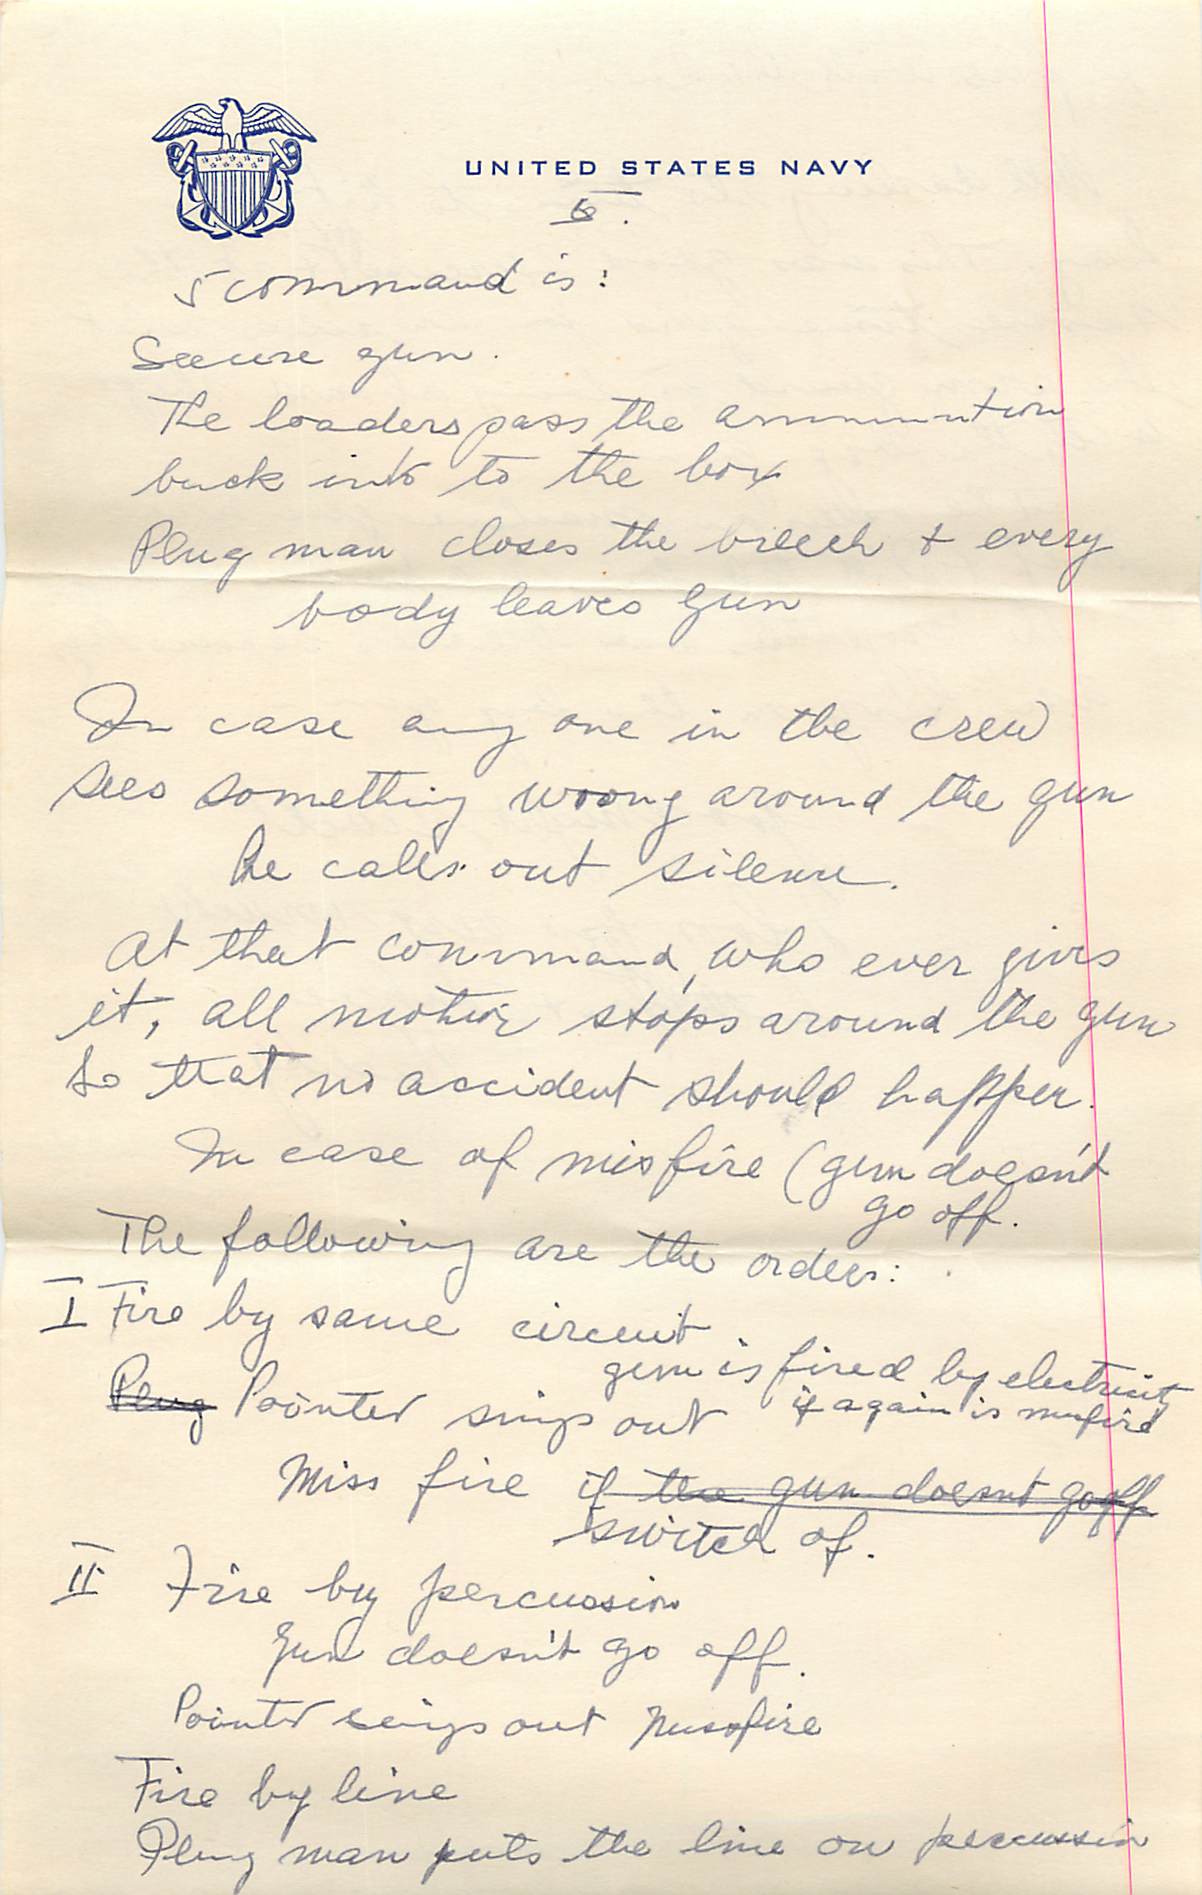 UNITED STATES NAVY
6.
5 command is:
Secure gun.
The loaders pass the ammunition
back into to the box
Plug man closes the breech & every
body leaves gun
In case any one in the crew
sees something wrong around the gun
he calls out silence.
At that command, who ever gives
it, all motion stops around the gun
so that no accident should happen.
In case of misfire (gun doesn't
go off.
The following are the orders:
I Fire by same circuit.
gun is fired by electricity
Plug Pointer sings out if again is misfire
Miss fire if the gun doesnt go off
switch of.
II Fire by percussion
Gun doesn't go off.
Pointer sings out Missfire
Fire by line
Plug man puts the line on percussion